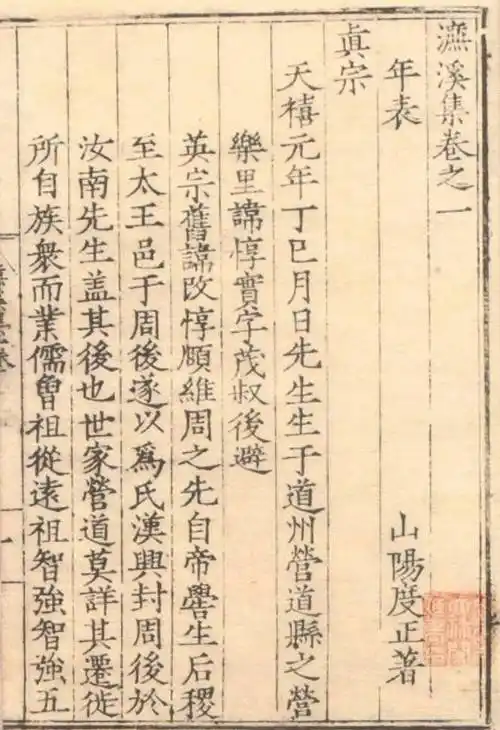 濂溪集卷之一
年表　山陽度正著
眞宗
天禧元年丁巳月日先生生于道州營道縣之營
樂里諱惇實字茂叔後避
英宗舊諱改惇頤維周之先自帝嚳生后稷
至太王邑于周後遂以爲氏漢興封周後於
汝南先生盖其後也世家營道莫詳其遷徙
所自族衆而業儒曾祖從遠祖智強智強五